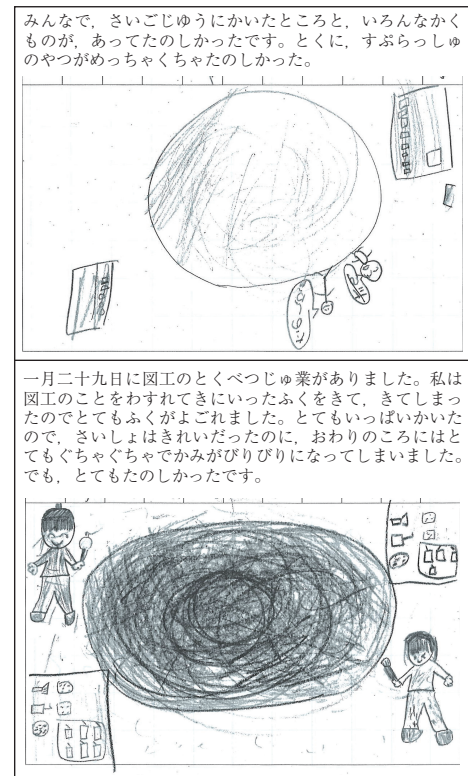 みんなで，さいごじゆうにかいたところと，いろんなかく
ものが，あってたのしかったです。とくに，すぷらっしゅ
のやつがめっちゃくちゃたのしかった。
一月二十九日に図工のとくべつじゅ業がありました。私は
図工のことをわすれてきにいったふくをきて，きてしまっ
たのでとてもふくがよごれました。とてもいっぱいかいた
ので，さいしょはきれいだったのに，おわりのころにはと
てもぐちゃぐちゃでかみがびりびりになってしまいました。
でも，とてもたのしかったです。